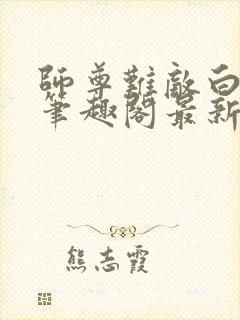 師尊難敵白
筆趣閣最新
熊志霞